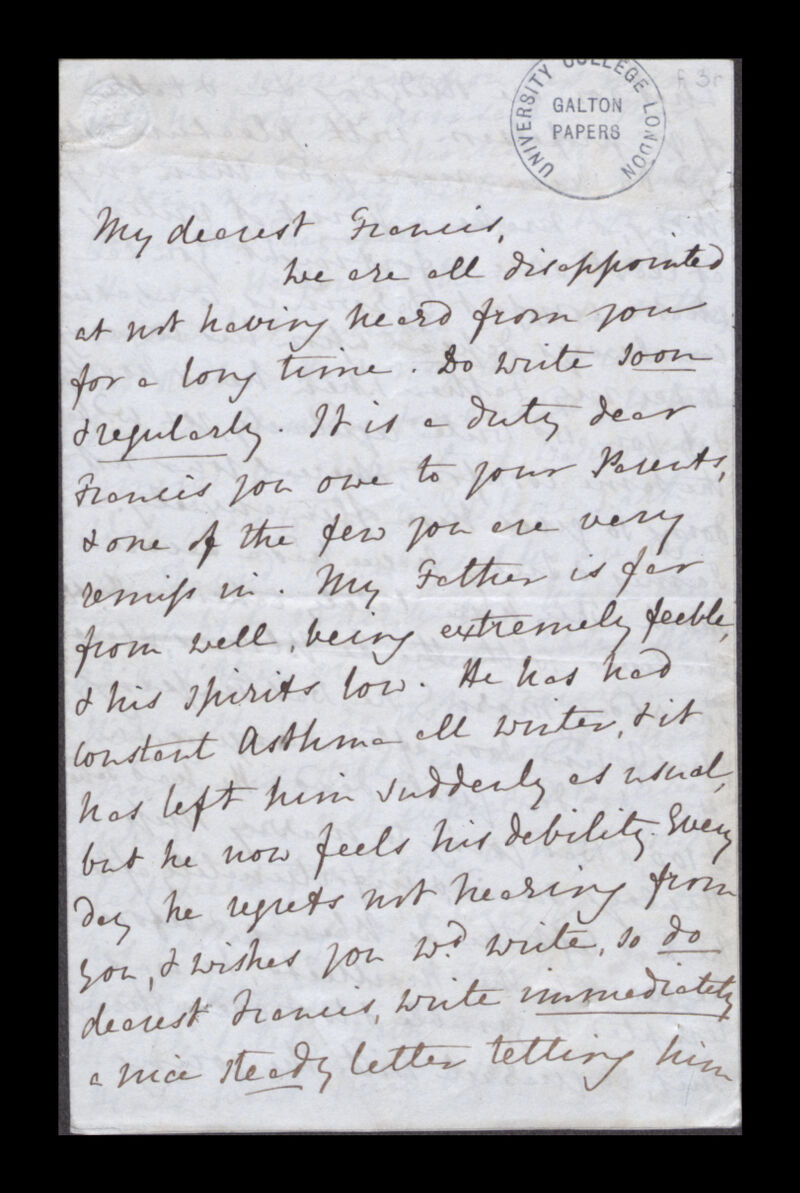 UNIVERSITY COLLEGE LONDON
GALTON
PAPERS
f 3r
My dearest Francis,
We are all disappointed
at not having heard from you
for a long time. Do write soon
& regularly. It is a duty dear
Francis you owe to your Parents,
& one of the few you are very
remiss in. My Father is far
from well, being extremely feeble,
& his spirits low. He has had
constant Asthma all winter, & it
has left him suddenly as usual,
but he now feels his debility. Every
day he regrets not hearing from
you, & wishes you wd write, so do
dearest Francis, write immediately
a nice steady letter telling him